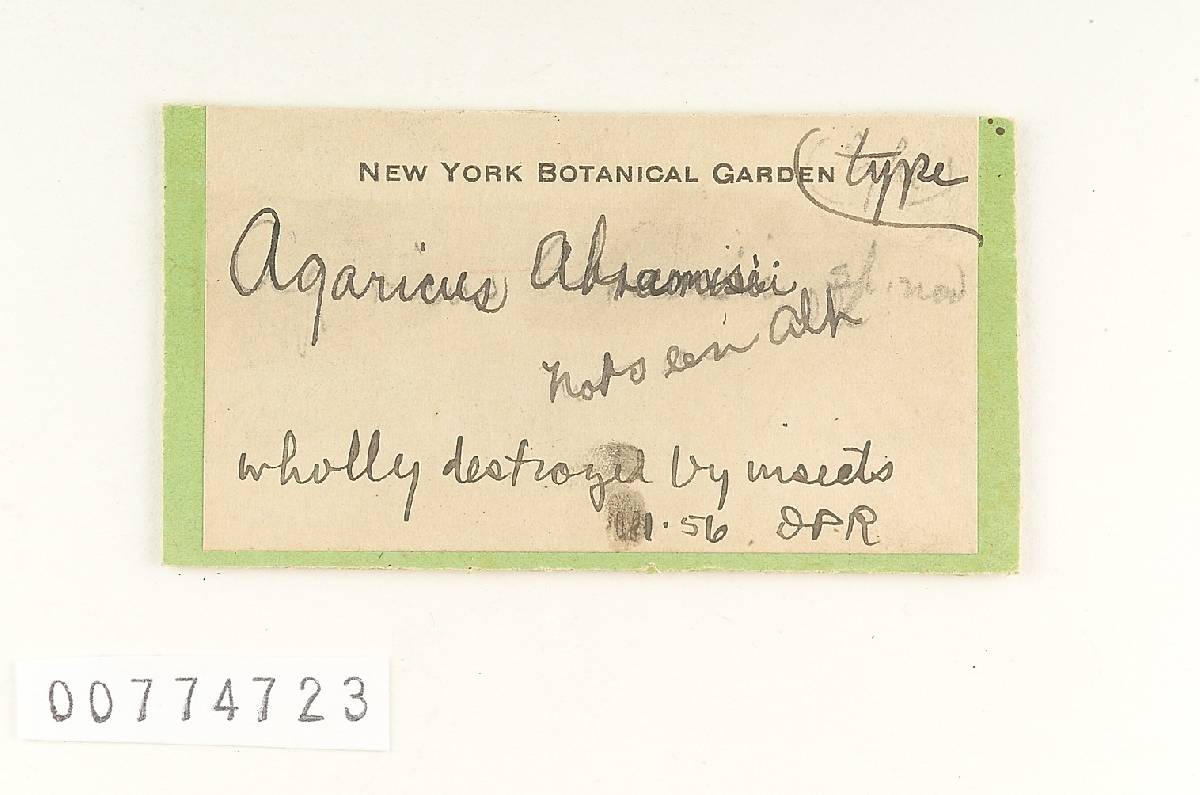 NEW YORK BOTANICAL GARDEN (type
Agaricus Abramsii
Not seen AHS
wholly destroyed by insects
1·56 DPR
00774723